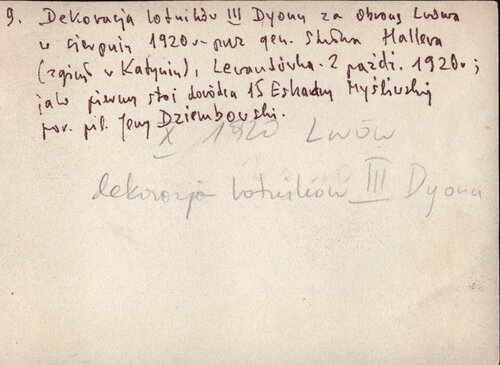 9. Dekoracja lotników III Dyonu za obronę Lwowa
w sierpniu 1920 r. przez gen. Stan. Hallera
(zginął w Katyniu), Lewandówka 2 paźdz. 1920 r;
jako pierwszy stoi dowódca 15 Eskadry Myśliwskiej
por. pil. Jerzy Dziembowski.
X 1920 Lwów
dekoracja lotników III Dyonu